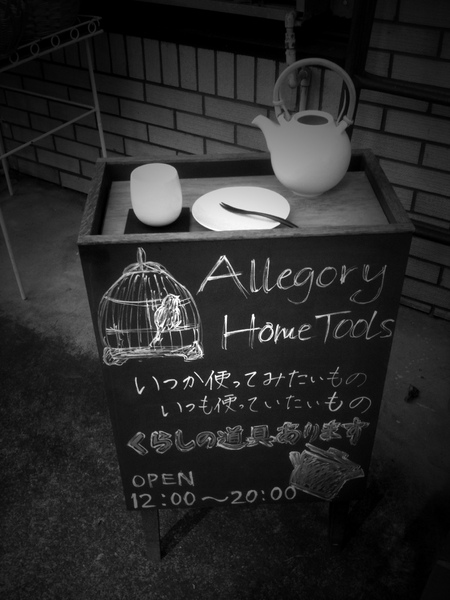 Allegory
Home Tools
いつか使ってみたいもの
いつも使っていたいもの
くらしの道具あります
OPEN
12:00～20:00